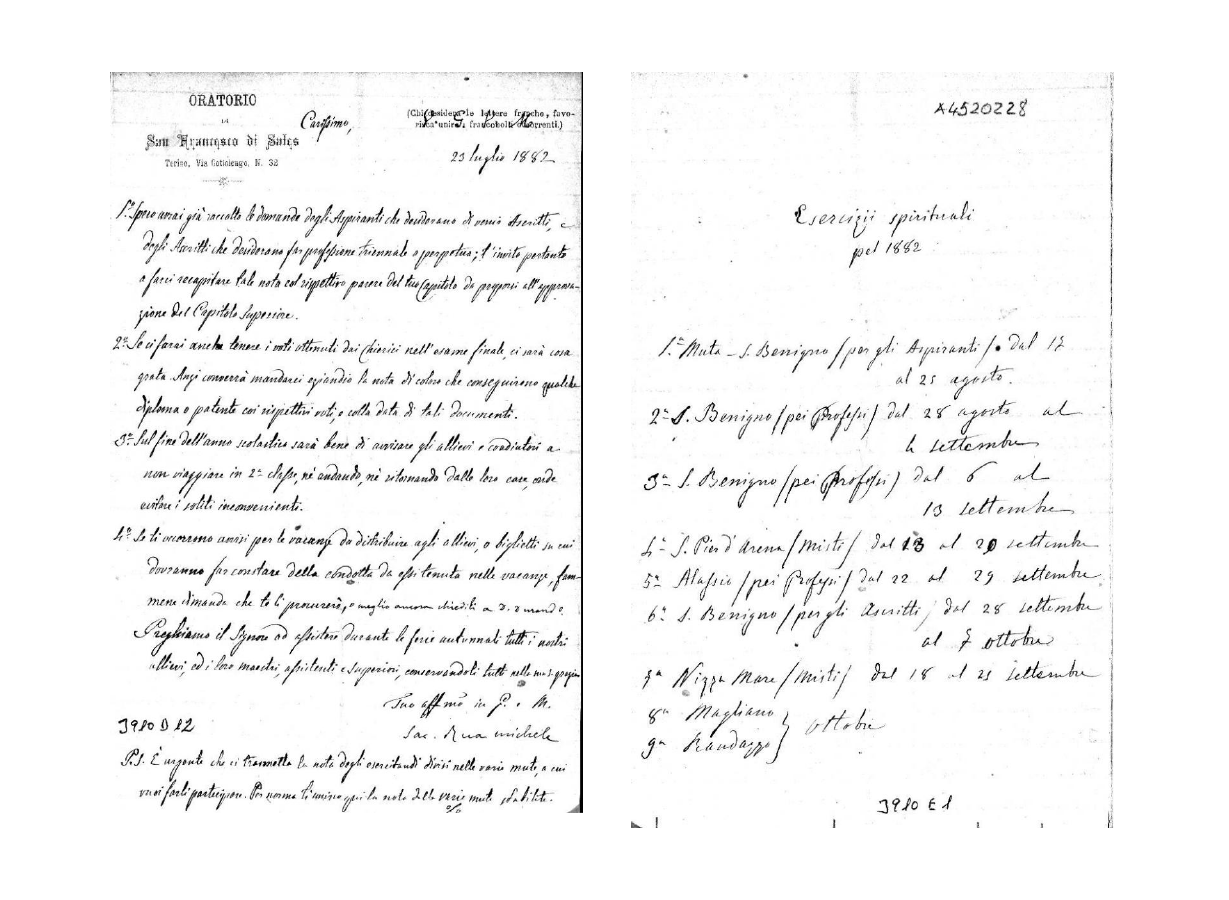 ORATORIO
DI
San Francesco di Sales
Torino, Via Cottolengo, N. 32
(Chi desidera le lettere franche, favo-
risca unire i francobolli occorrenti.)
V. G. M.
Carissimo,
23 luglio 1882
1º Spero avrai già raccolto le domande degli Aspiranti che desiderano di venir Ascritti, e
degli Ascritti che desiderano far professione triennale o perpetua; t'invito pertanto
a farci recapitare tale nota col rispettivo parere del tuo Capitolo da proporsi all'approva-
zione del Capitolo Superiore.
2º Se ci farai anche tenere i voti ottenuti dai Chierici nell'esame finale, ci sarà cosa
grata. Anzi converrà mandarci eziandio la nota di coloro che conseguirono qualche
diploma o patente coi rispettivi voti, e colla data di tali documenti.
3º Sul fine dell'anno scolastico sarà bene di avvisare gli allievi e coadiutori a
non viaggiare in 2ª classe, nè andando, nè ritornando dalle loro case, onde
evitare i soliti inconvenienti.
4º Se ti occorrono avvisi per le vacanze da distribuire agli allievi, o biglietti su cui
dovranno far constare della condotta da essi tenuta nelle vacanze, fam-
mene dimanda che te li procurerò, o meglio ancora chiedili a
Preghiamo il Signore ad assistere durante le ferie autunnali tutti i nostri
allievi, ed i loro maestri, assistenti e Superiori, conservandoli tutti nella sua grazia
Tuo affmo in G. e M.
Sac. Rua Michele
3980 D 12
P.S. È urgente che ci trasmetta la nota degli esercitandi divisi nelle varie mute, a cui
vuoi farli partecipare. Per norma ti unisco qui la nota delle varie mute stabilite.
%
A4520228
Esercizii spirituali
pel 1882
1.ª Muta - S. Benigno (per gli Aspiranti). dal 17
al 25 agosto.
2ª S. Benigno (pei Professi) dal 28 agosto al
4 settembre
3ª S. Benigno (pei Professi) dal 6 al
13 settembre
4ª S. Pier d'Arena (Misti) dal 13 al 20 settembre
5ª Alassio (pei Professi) dal 22 al 29 settembre
6ª S. Benigno (per gli Ascritti) dal 28 settembre
al 7 ottobre
7ª Nizza Mare (Misti) dal 18 al 25 settembre
8ª Magliano
9ª Randazzo } ottobre
3980 E 1